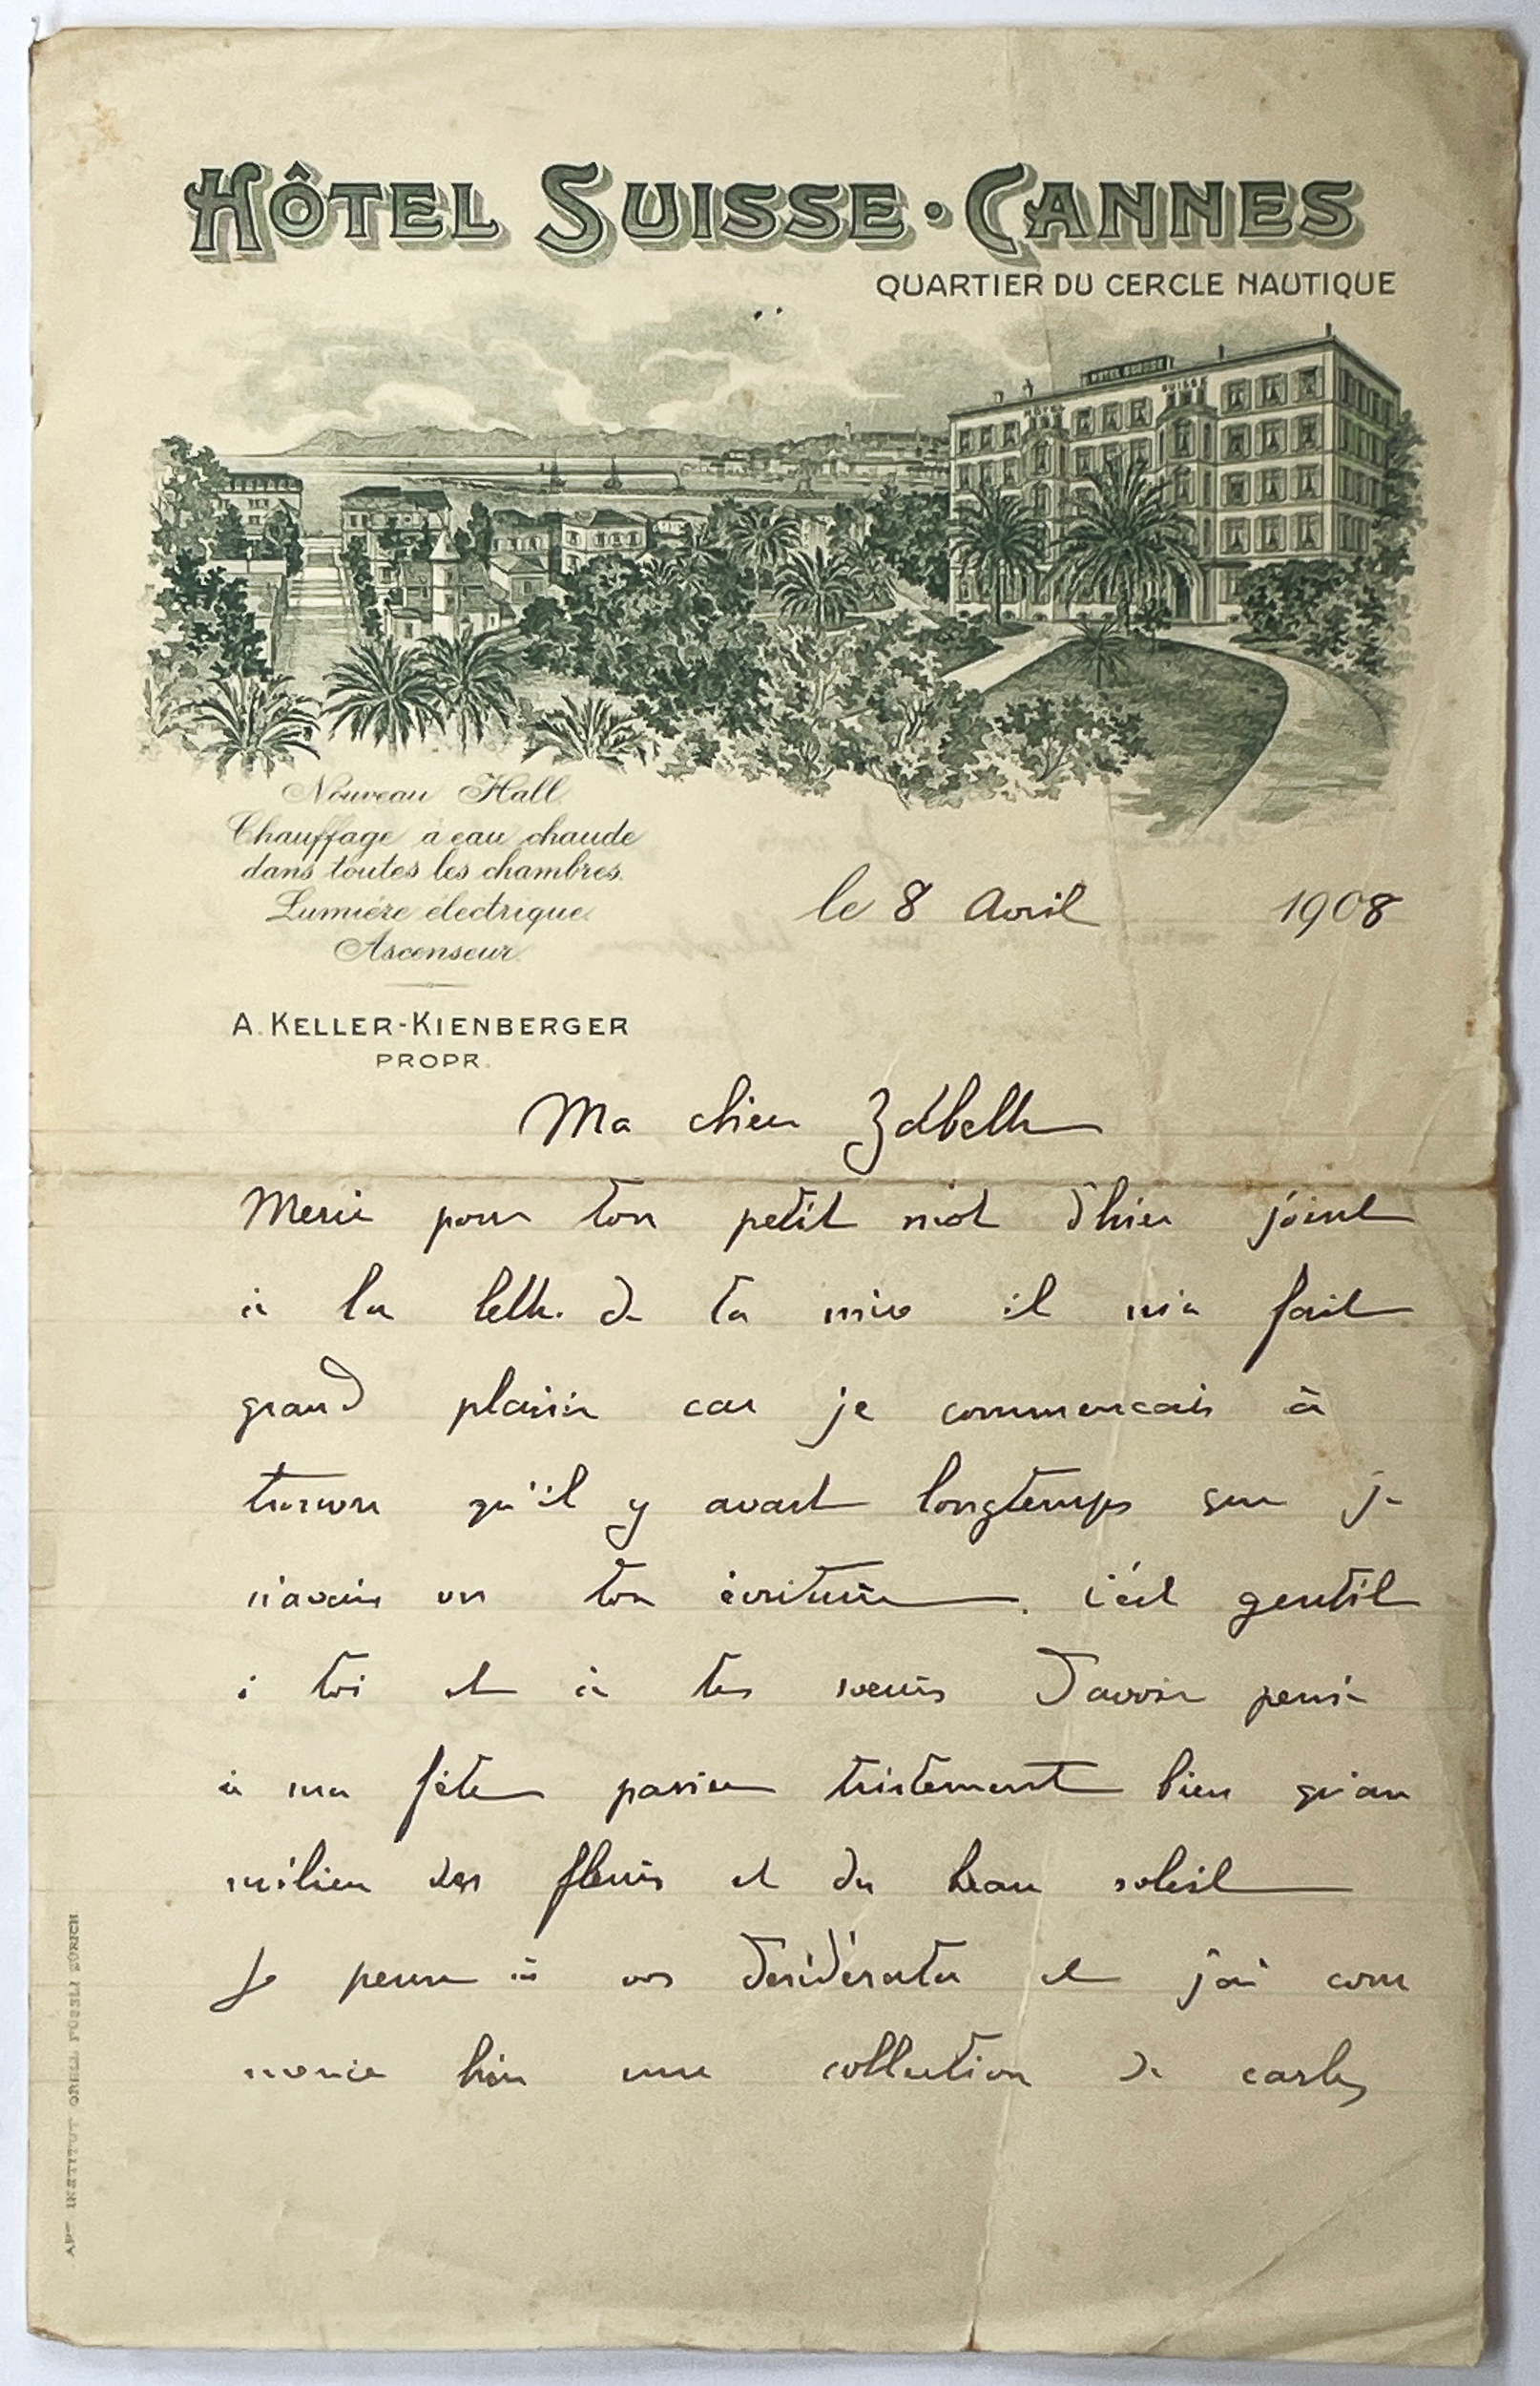 HÔTEL SUISSE · CANNES
QUARTIER DU CERCLE NAUTIQUE
HOTEL SUISSE
HOTEL SUISSE
Nouveau Hall.
Chauffage à eau chaude
dans toutes les chambres.
Lumière électrique.
Ascenseur.
le 8 Avril 1908
A. KELLER-KIENBERGER
PROPR.
Ma chère Zabelle
Merci pour ton petit mot d'hier joint
à la lettre de ta mère il m'a fait
grand plaisir car je commencais à
trouver qu'il y avait longtemps que je
n'avais vu ton écriture. c'est gentil
à toi et à tes soeurs d'avoir pensé
à ma fête passée tristement bien qu'au
milieu des fleurs et du beau soleil
Je pense à vos desidérata et j'ai com
mencé hier une collection de cartes
ART. INSTITUT ORELL FÜSSLI ZÜRICH